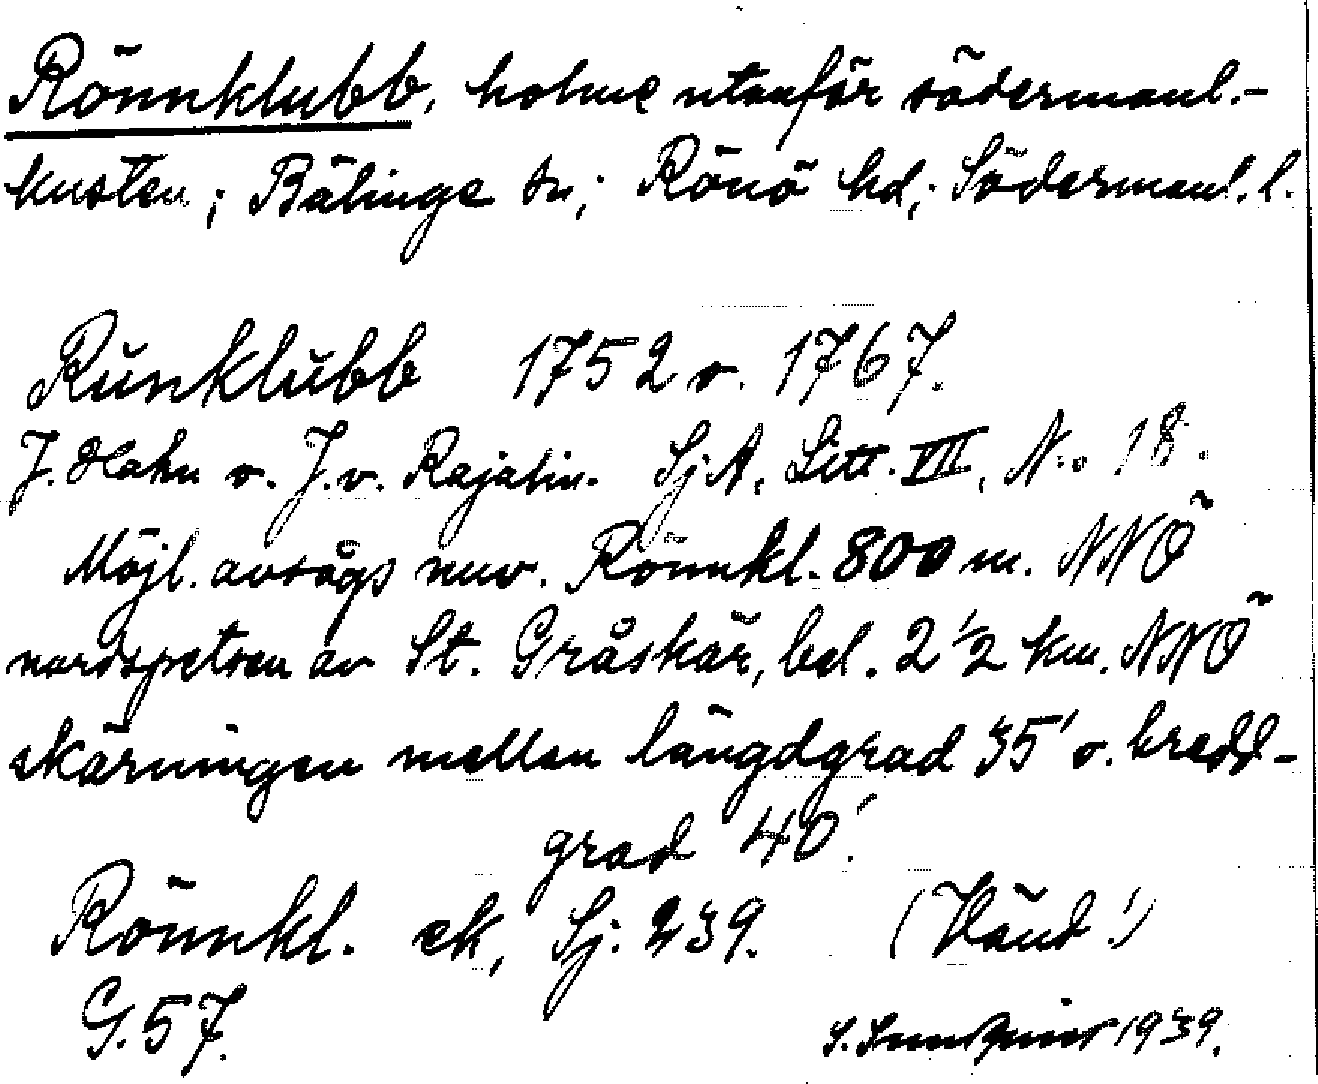 Rönnklubb, holme utanför södermanl.-
kusten; Bälinge sn; Rönö hd; Södermanl. l.
Runklubb 1752 o. 1767.
J. Hahn o. J. v. Rajalin. SjA, Litt. VII, No 18.
Möjl. avsågs nuv. Rönnkl. 800 m. NNÖ
nordspetsen av St. Gråskär, bel. 2 1/2 km. NNÖ
skärningen mellan längdgrad 35' o. bredd-
grad 40'.
Rönnkl. ek, Sj. 239. (Vänd!)
G. 57.
1939.